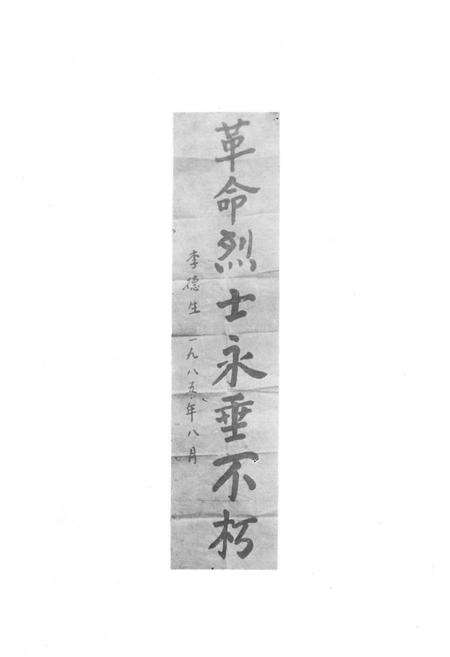 革命烈士永垂不朽
李德生 一九八五年八月